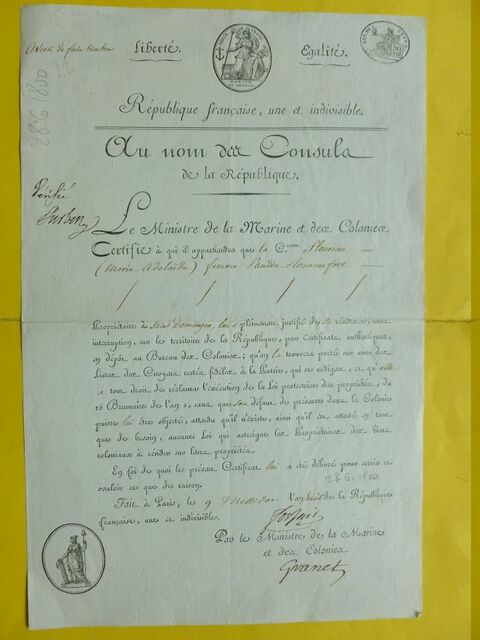 Liberté.
Egalité.
MARINE
République française, une et indivisible.
Au nom des Consuls
de la République.
Vérifié
28.6.1800
Le Ministre de la Marine et des Colonies
Certifie à qui il appartiendra que la C.enne Fleuriau
(Marie Adelaïde) femme Pandin Rommefort
Propriétaire à Saint-Domingue, lui a pleinement justifié de sa résidence, sans
interruption, sur les territoires de la République, par Certificats authentiques,
en dépôt au Bureau des Colonies; qu'on la trouvera portée sur une des
Listes des Citoyens restés fidèles à la Patrie, qui se rédigent, et qu'elle
a tout droit de réclamer l'exécution de la Loi protectrice des propriétés, du
25 Brumaire de l'an 2, sans que son défaut de présence dans la Colonie
puisse lui être objecté, attendu qu'il n'existe, ainsi qu'il est attesté en tant
que de besoin, aucune Loi qui astreigne les Propriétaires des biens
coloniaux à résider sur leurs propriétés.
En foi de quoi le présent Certificat lui a été délivré pour servir et
valoir ce que de raison.
28.6.1800
Fait à Paris, le 9 Messidor l'an huit de la République
française, une et indivisible.
Par le Ministre de la Marine
et des Colonies
Granet